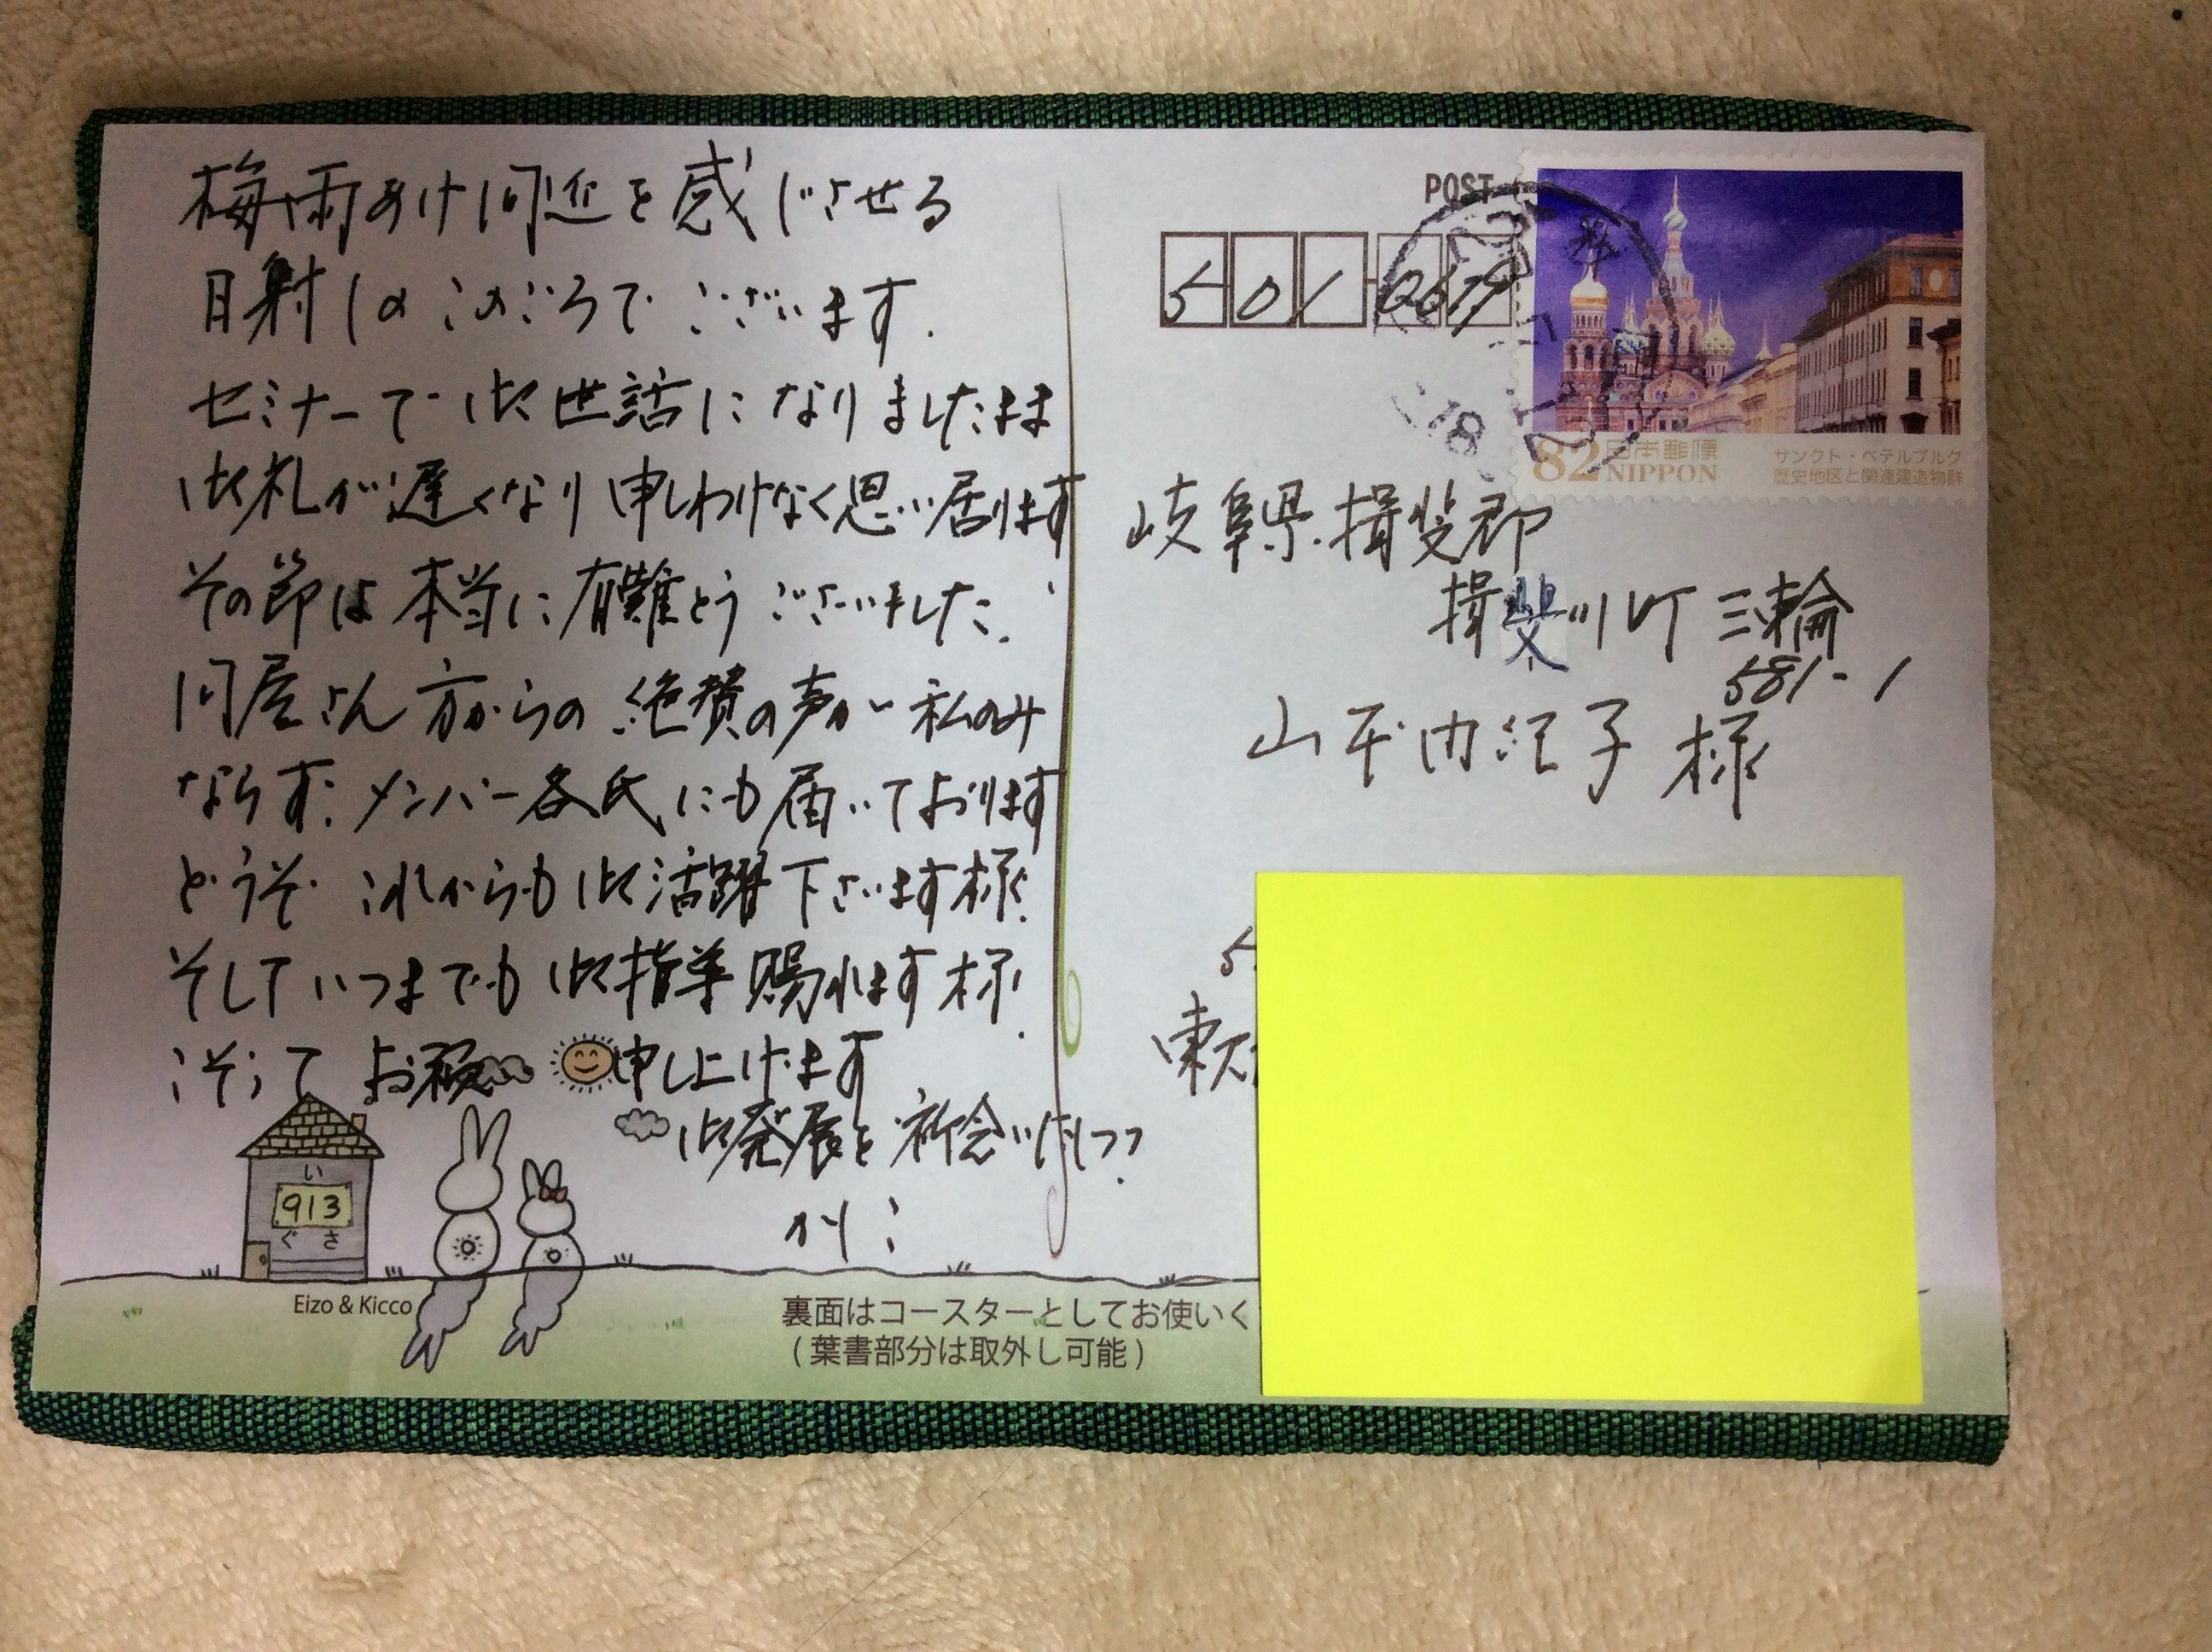 梅雨あけ間近を感じさせる
日射しのこのごろでございます.
セミナーで御世話になりましたまま
御礼が遅くなり申しわけなく思い居ります
その節は本当に有難とうございました.
問屋さん方からの絶賛の声が私のみ
ならず.メンバー各氏にも届いております
どうぞこれからも御活躍下さいます様.
そしていつまでも御指導賜れます様.
こぞってお祝い申し上げます
御発展を祈念いたしつつ.
い
913
ぐさ
Eizo & Kicco
裏面はコースターとしてお使いく
(葉書部分は取外し可能)
POST
501
82 日本郵便
NIPPON
サンクト・ペテルブルグ
歴史地区と関連建造物群
岐阜県揖斐郡
揖斐川町三輪
581-1
山本由紀子様
東大